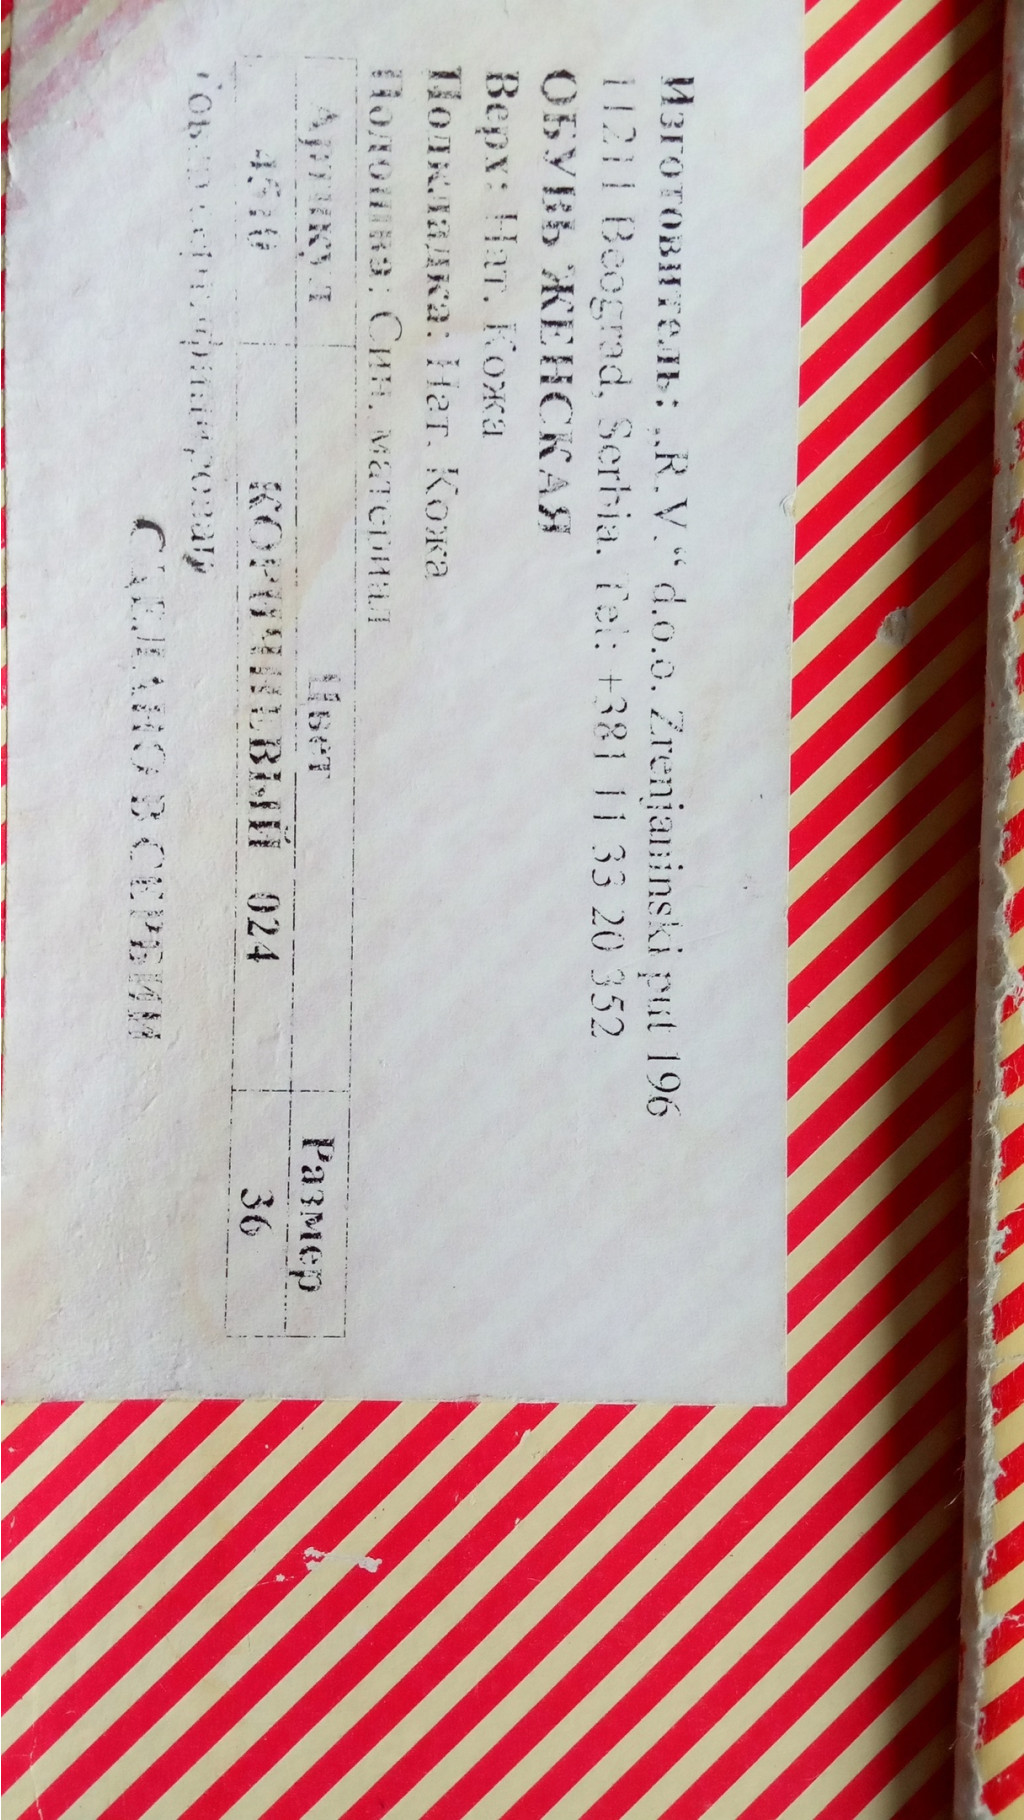 Изготовитель: „R.V.“ d.o.o. Zrenjaninski put 196
11211 Beograd, Serbia. Tel: +381 11 33 20 352
ОБУВЬ ЖЕНСКАЯ
Верх: Нат. Кожа
Подкладка: Нат. Кожа
Подошва: Син. материал
Артикул Цвет Размер
КОРИЧНЕВЫЙ 024 36
сертифицирован
СДЕЛАНО В СЕРБИИ